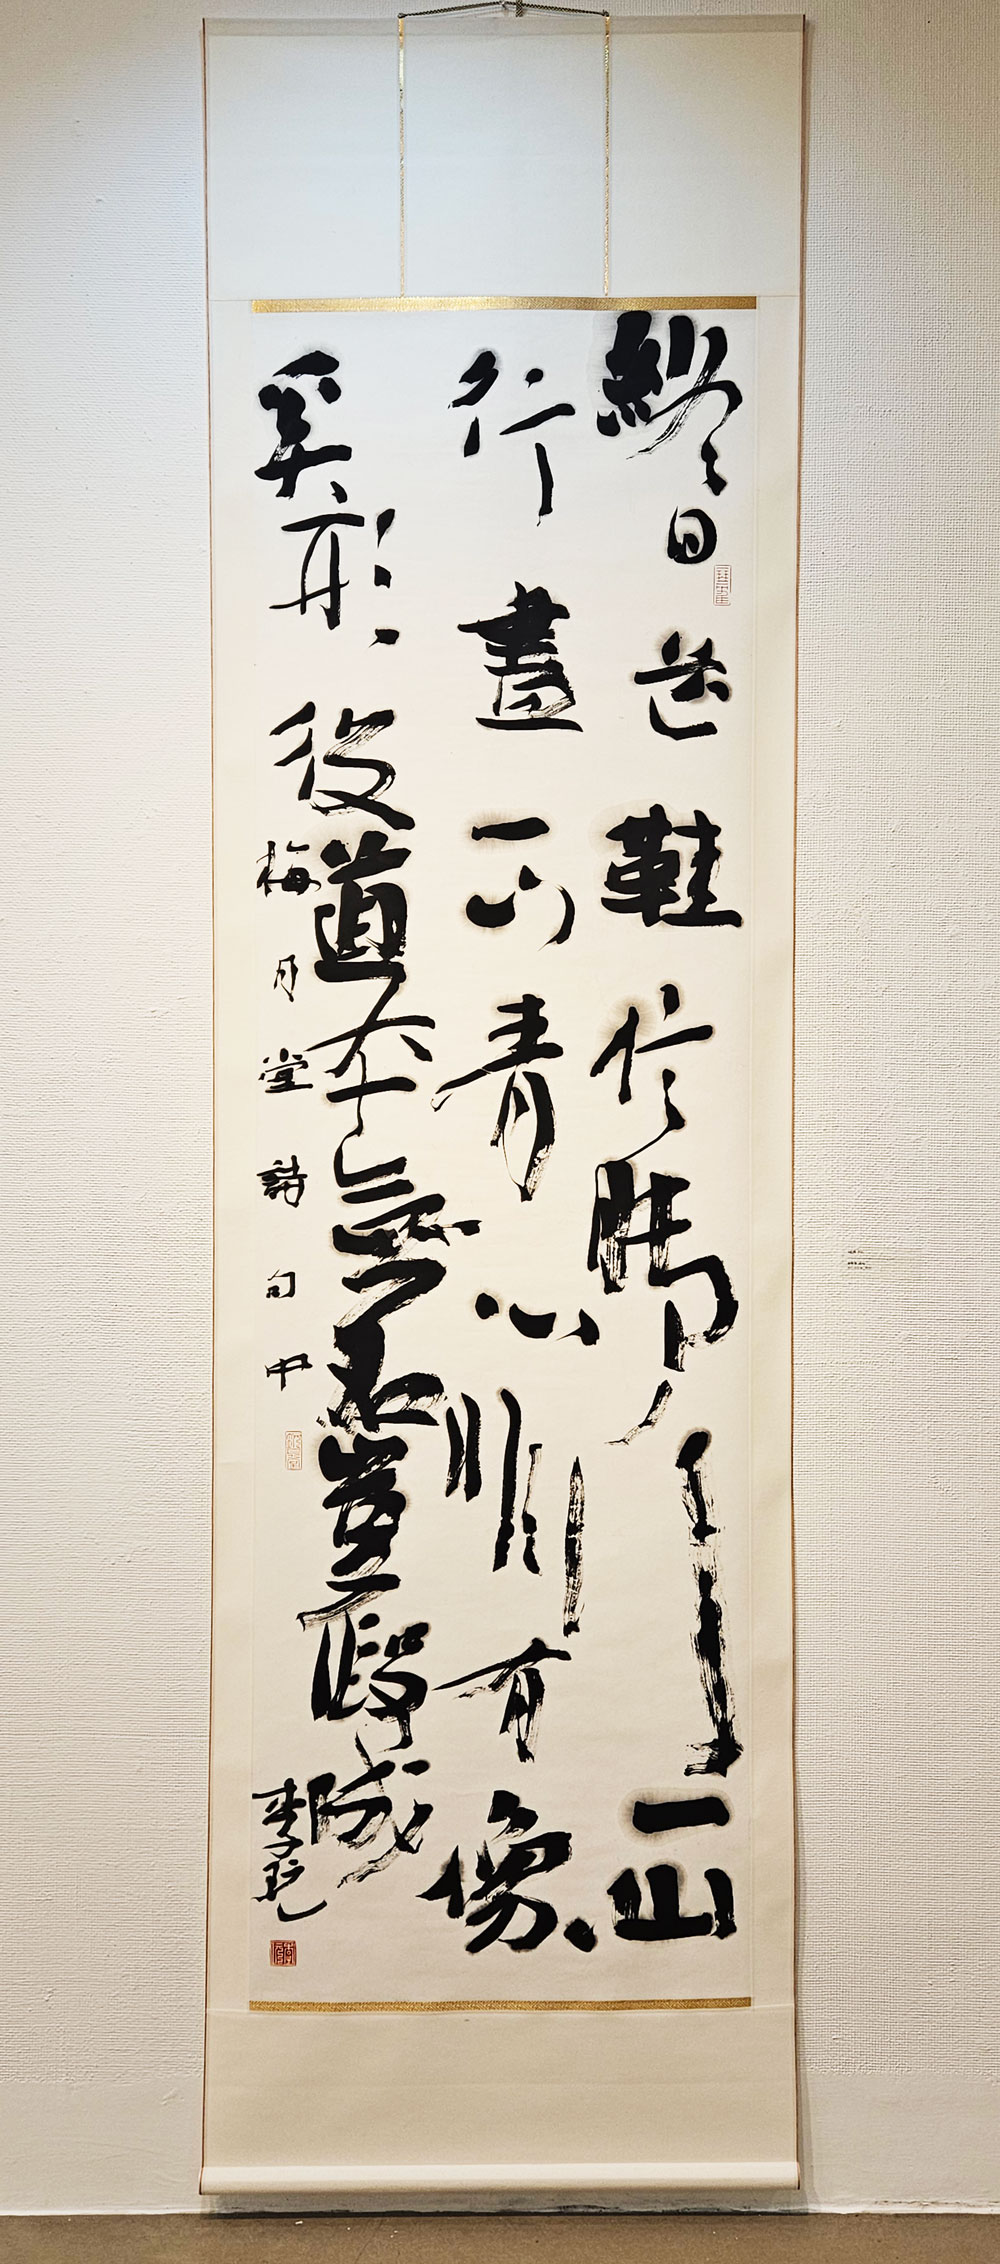 終日芒鞋信脚行一山
行盡一山青心非有像
奚形役道本無名豈假成
梅月堂詩句中